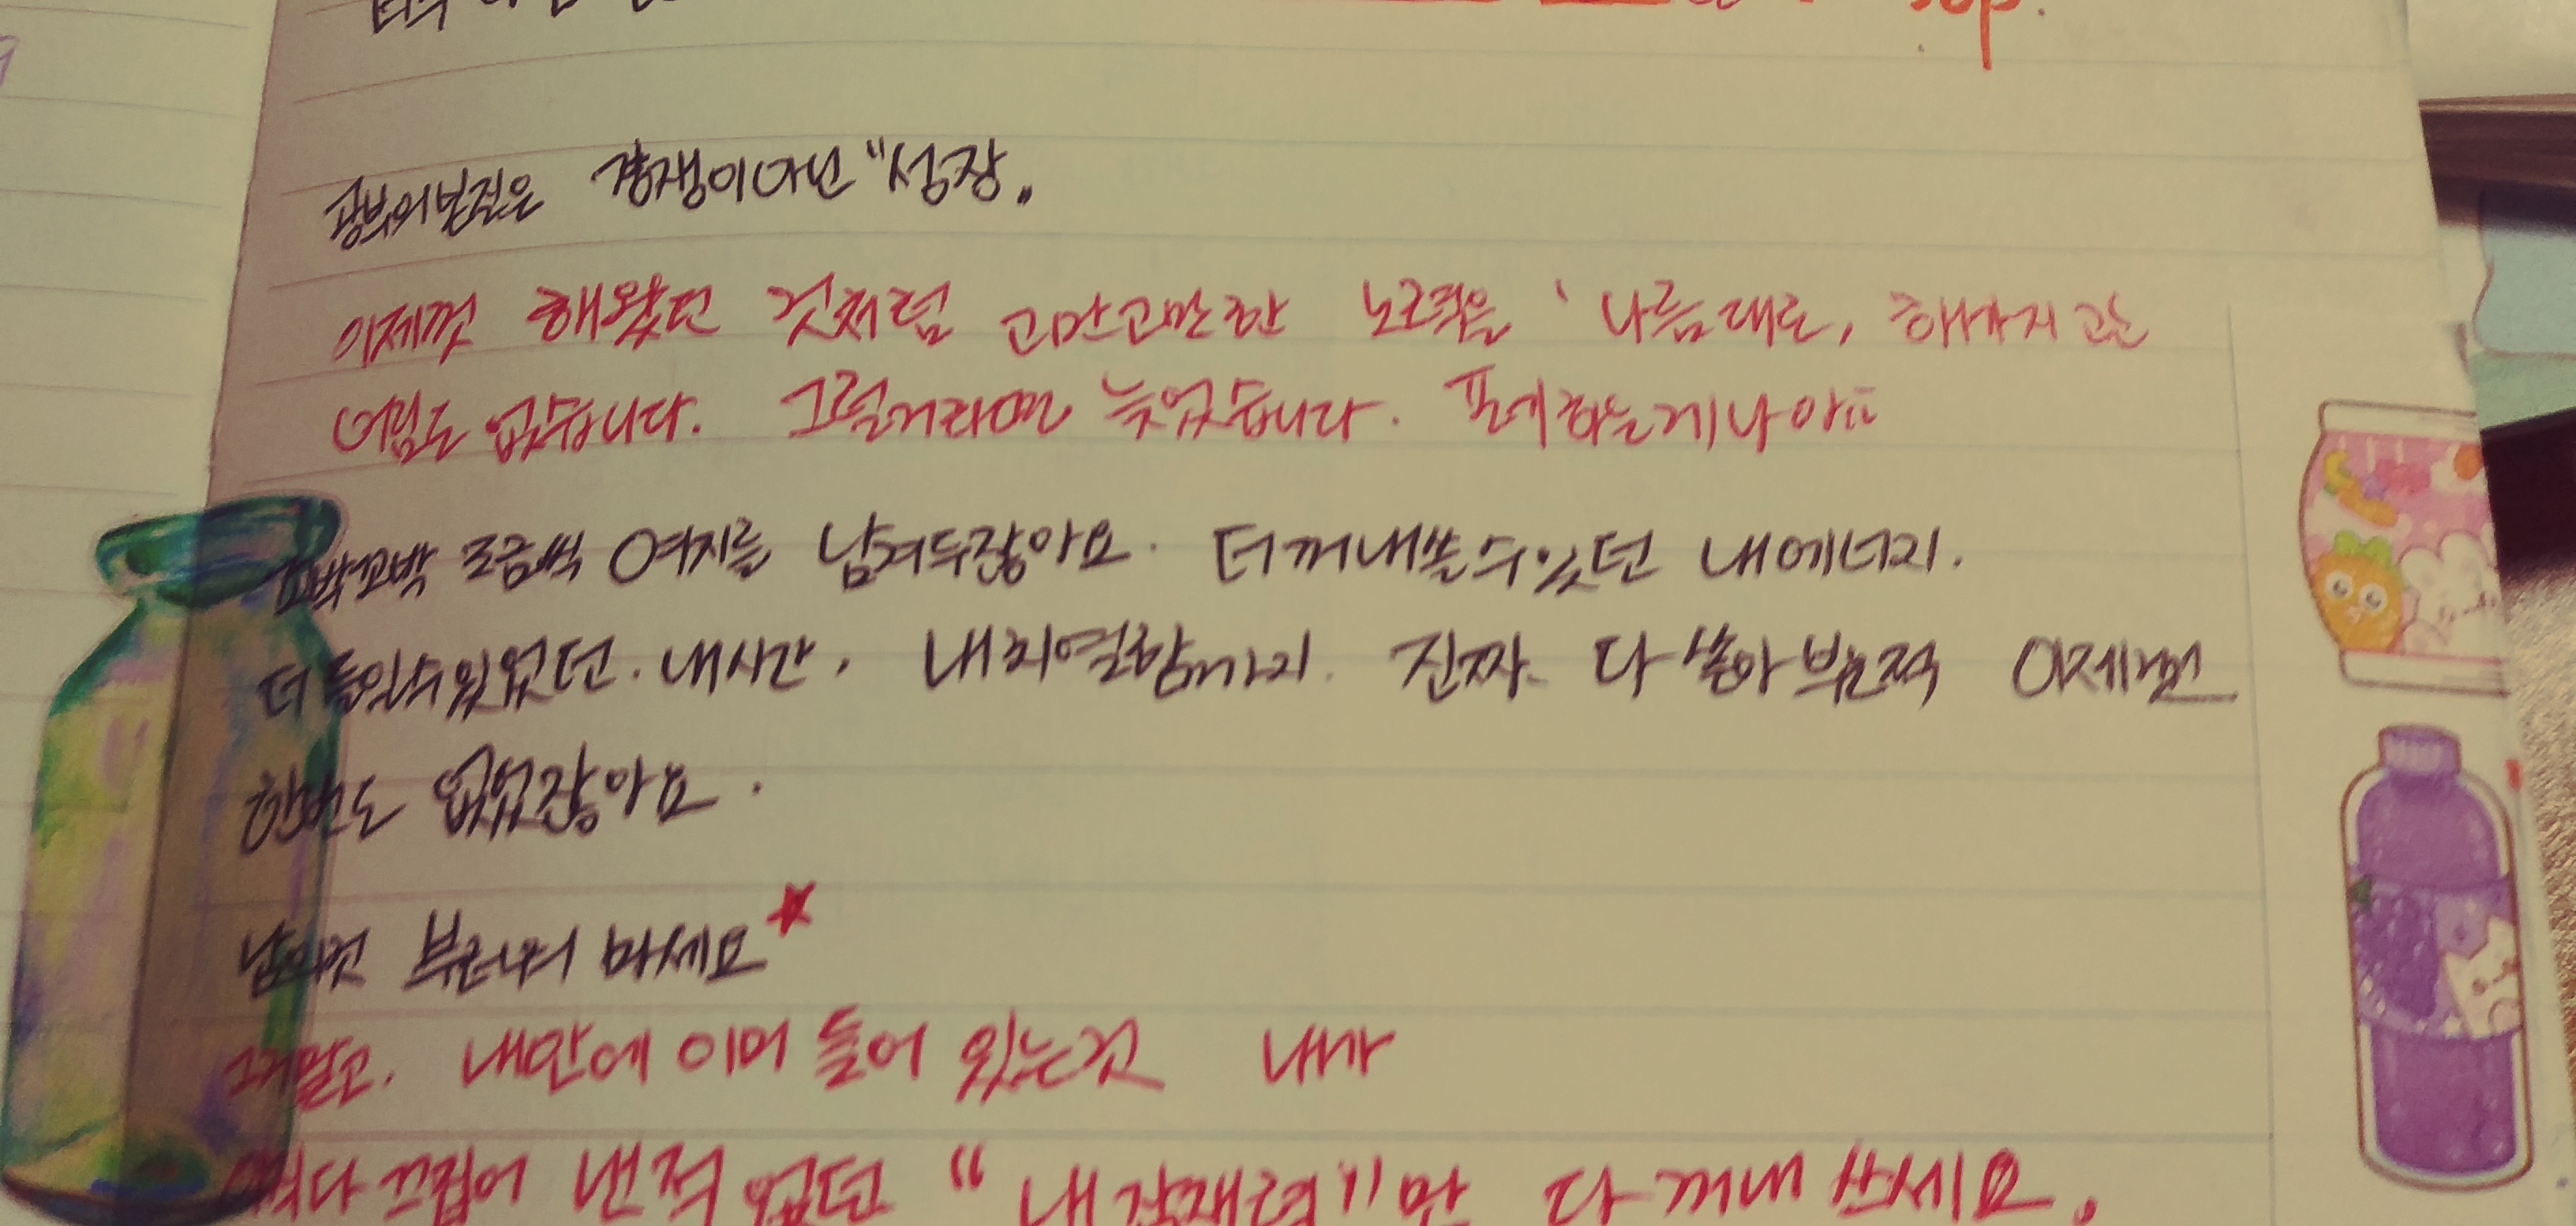 공부의본질은 경쟁이아닌 "성장"
이제껏 해왔던 것처럼 고만고만한 노력을 '나름대로, 해가지고는
어림도 없습니다. 그럴거라면 늦었습니다. 포기하는게나아요
꼬박꼬박 조금씩 여지를 남겨두잖아요. 더꺼내쓸수있던 내에너지.
더 들일수있었던. 내시간, 내치열함까지. 진짜 다 쏟아 부은적 이제껏
한번도 없었잖아요.
남의것 부러워 마세요
그거말고. 내안에 이미 들어 있는것 내가
다 끄집어 낸적 없던 "내잠재력"만 다 꺼내 쓰세요.